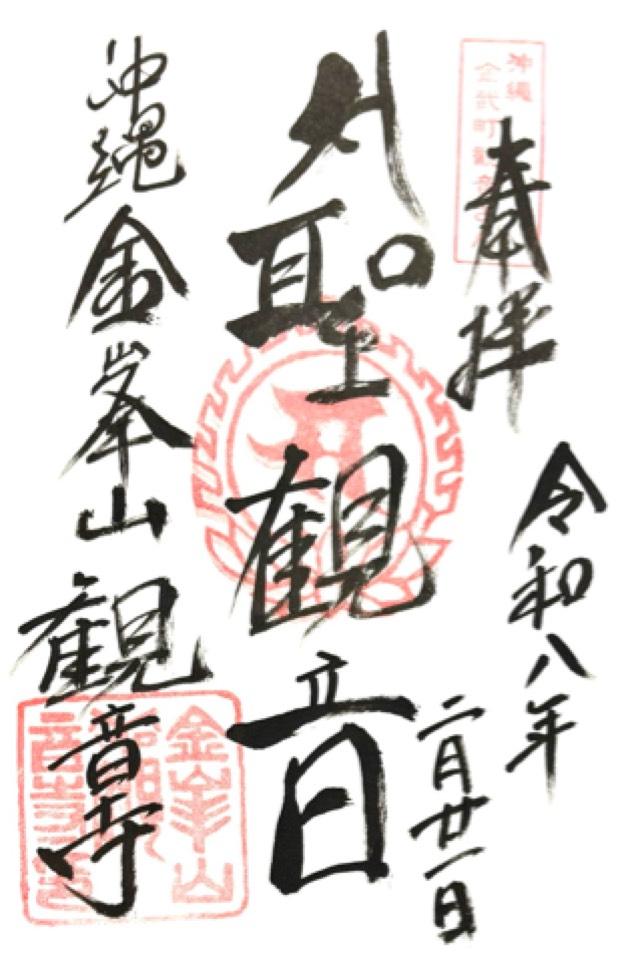 奉拝
令和八年
二月廿一日
聖観音
沖縄金峯山観音寺
沖縄
金武町観音寺
金峯山